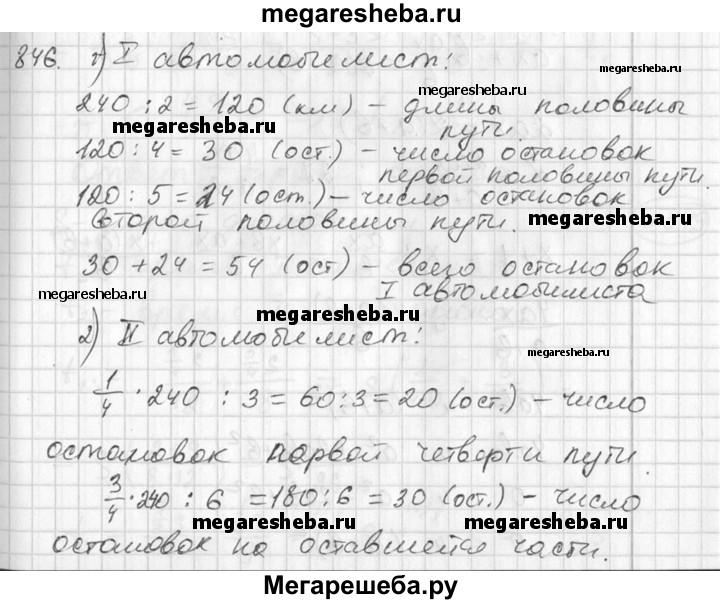 megaresheba.ru
846. 1) I автомобилист:
megaresheba.ru
240 : 2 = 120 (км) – длины половины
megaresheba.ru
пути.
120 : 4 = 30 (ост.) – число остановок
первой половины пути.
120 : 5 = 24 (ост.) – число остановок
второй половины пути.
megaresheba.ru
30 + 24 = 54 (ост) – всего остановок
I автомобилиста
megaresheba.ru
megaresheba.ru
2) II автомобилист:
megaresheba.ru
1/4 · 240 : 3 = 60 : 3 = 20 (ост.) – число
остановок первой четверти пути.
3/4 · 240 : 6 = 180 : 6 = 30 (ост.) – число
megaresheba.ru
megaresheba.ru
остановок на оставшейся части.
Мегарешеба.ру